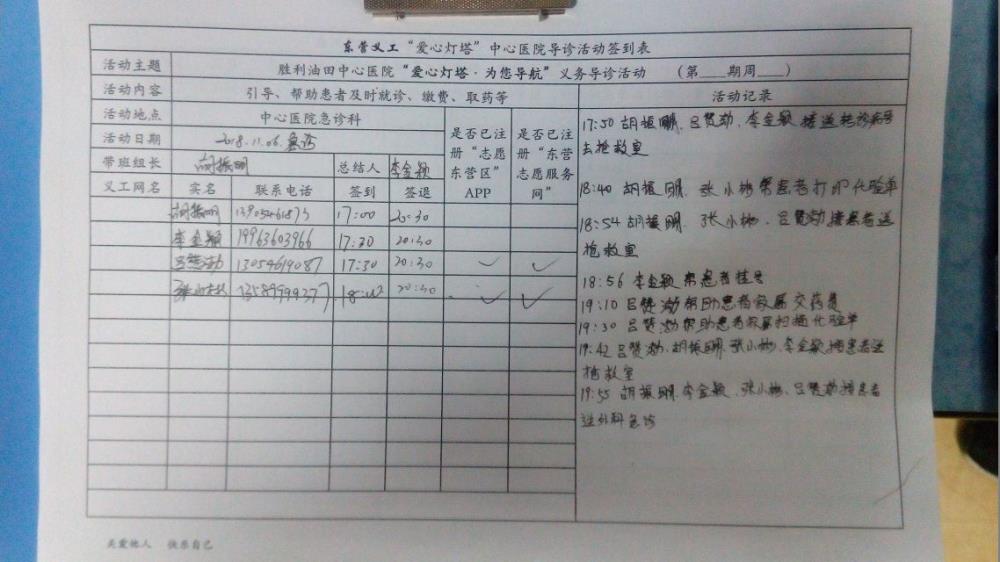 东营义工“爱心灯塔”中心医院导诊活动签到表
活动主题 胜利油田中心医院“爱心灯塔·为您导航”义务导诊活动 （第___期周___）
活动内容 引导、帮助患者及时就诊、缴费、取药等 活动记录
活动地点 中心医院急诊科 是否已注册“志愿东营区”APP 是否已注册“东营志愿服务网”
活动日期 2018.11.06. 急诊
带班组长 胡振明 总结人 李金颖
义工网名 实名 联系电话 签到 签退
胡振明 17:00 20:30
李金颖 19963603966 17:20 20:30
吕赞勃 13054619087 17:30 20:30
张小彬 13589999277 20:30
17:50 胡振明、吕赞勃、李金颖 接送
去抢救室
18:40 胡振明、张小彬帮患者打印化验单
18:54 胡振明、张小彬、吕赞勃接患者送
抢救室
18:56 李金颖 帮患者挂号
19:10 吕赞勃帮助患者家属交药费
19:30 吕赞勃帮助患者家属扫描化验单
19:42 吕赞勃、胡振明、张小彬、李金颖接患者送
抢救室
19:55 胡振明、李金颖、张小彬、吕赞勃接患者
送外科急诊
关爱他人 快乐自己